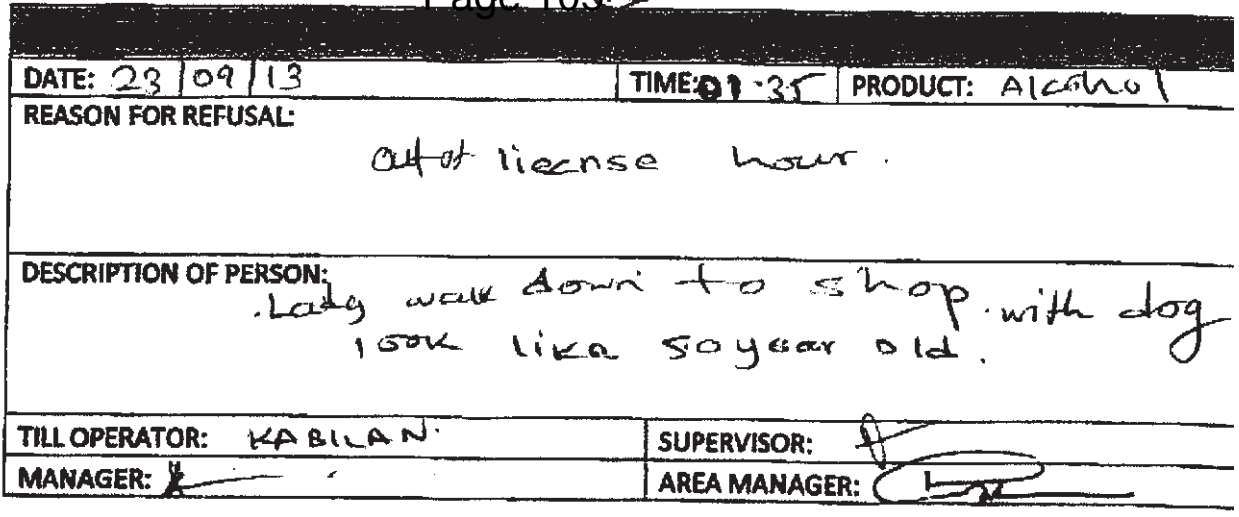 Page 105
DATE: 23/09/13 TIME: 07.35 PRODUCT: Alcohol
REASON FOR REFUSAL:
Out of liecnse hour.
DESCRIPTION OF PERSON:
.Lady walk down to shop. with dog
look like 50 year old.
TILL OPERATOR: KABILAN. SUPERVISOR:
MANAGER: AREA MANAGER: